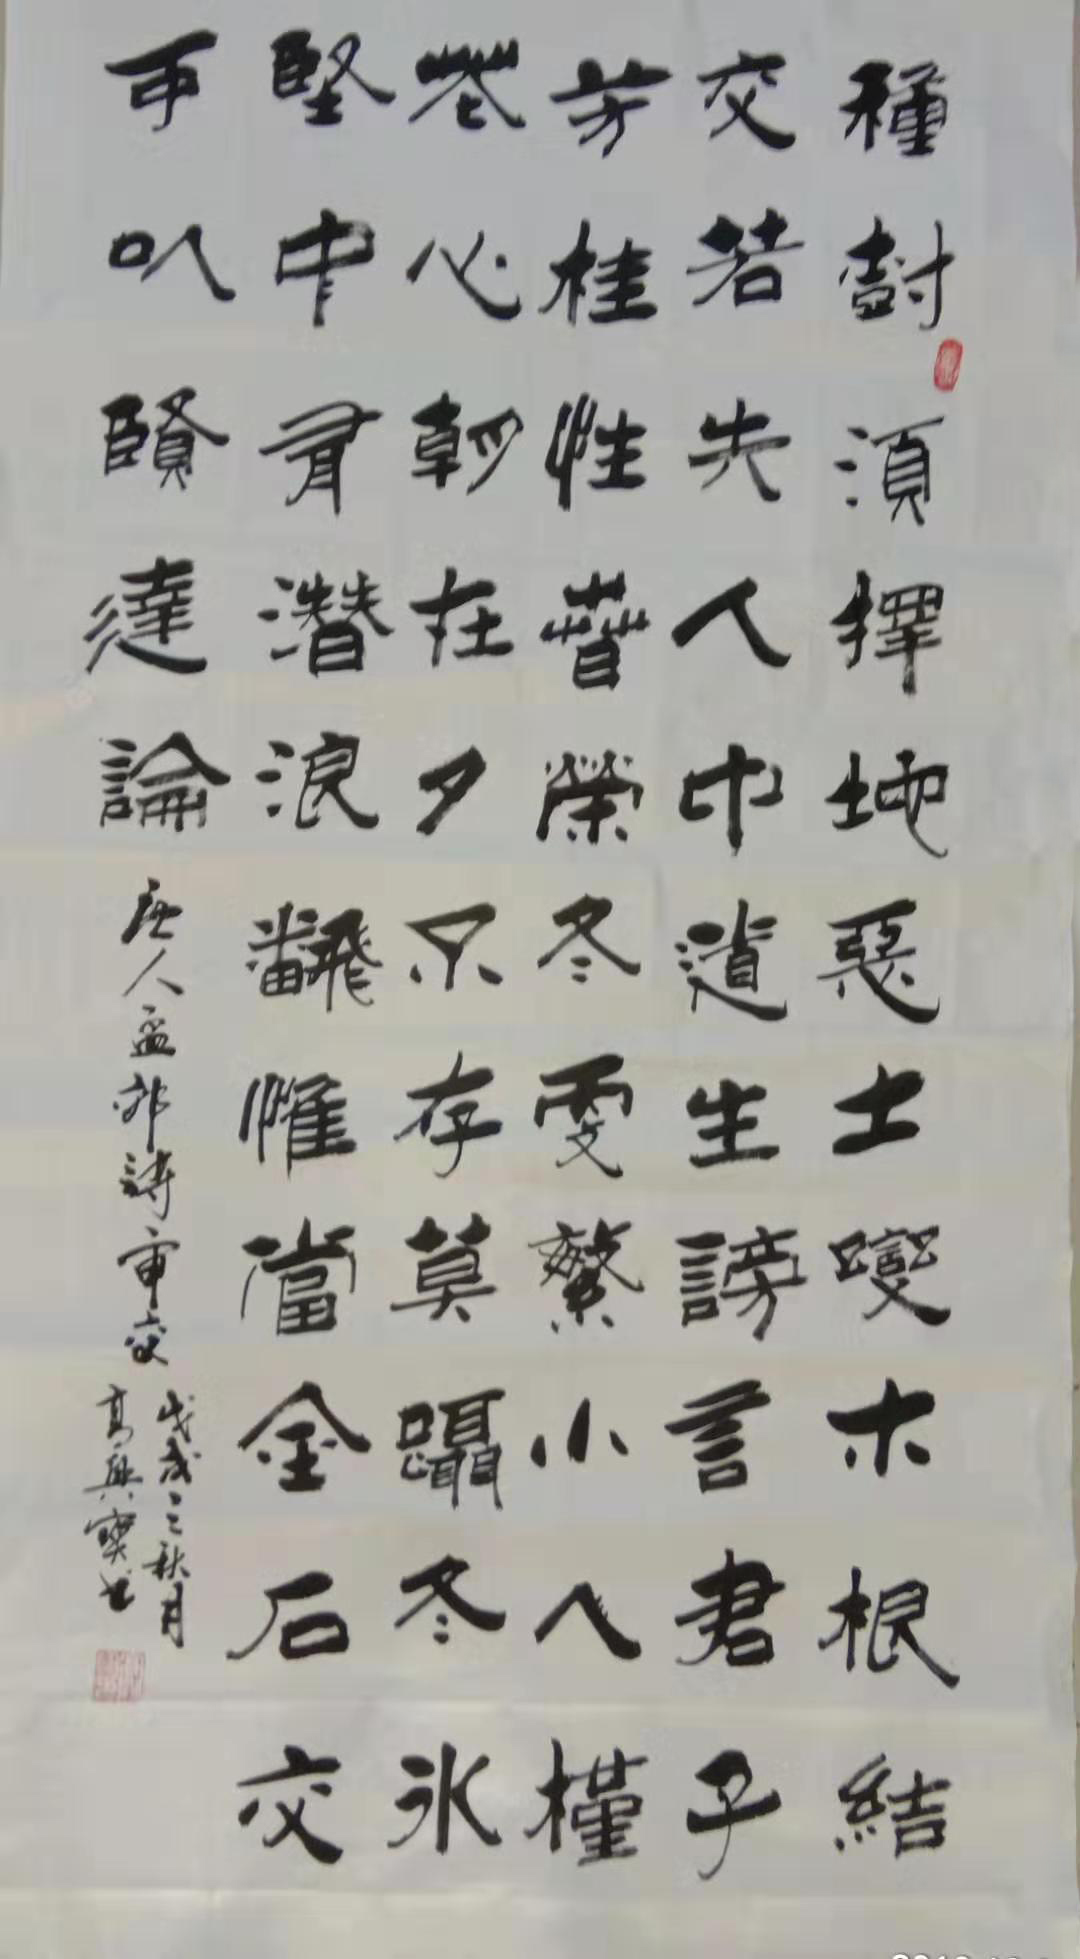 種樹須擇地惡土變木根結
交若失人中道生謗言君子
芳桂性春榮冬更繁小人槿
花心朝在夕不存莫躡冬冰
堅中有潛浪翻惟當金石交
可以賢達論
唐人孟郊詩審交
戊戌之秋月
高興寶书